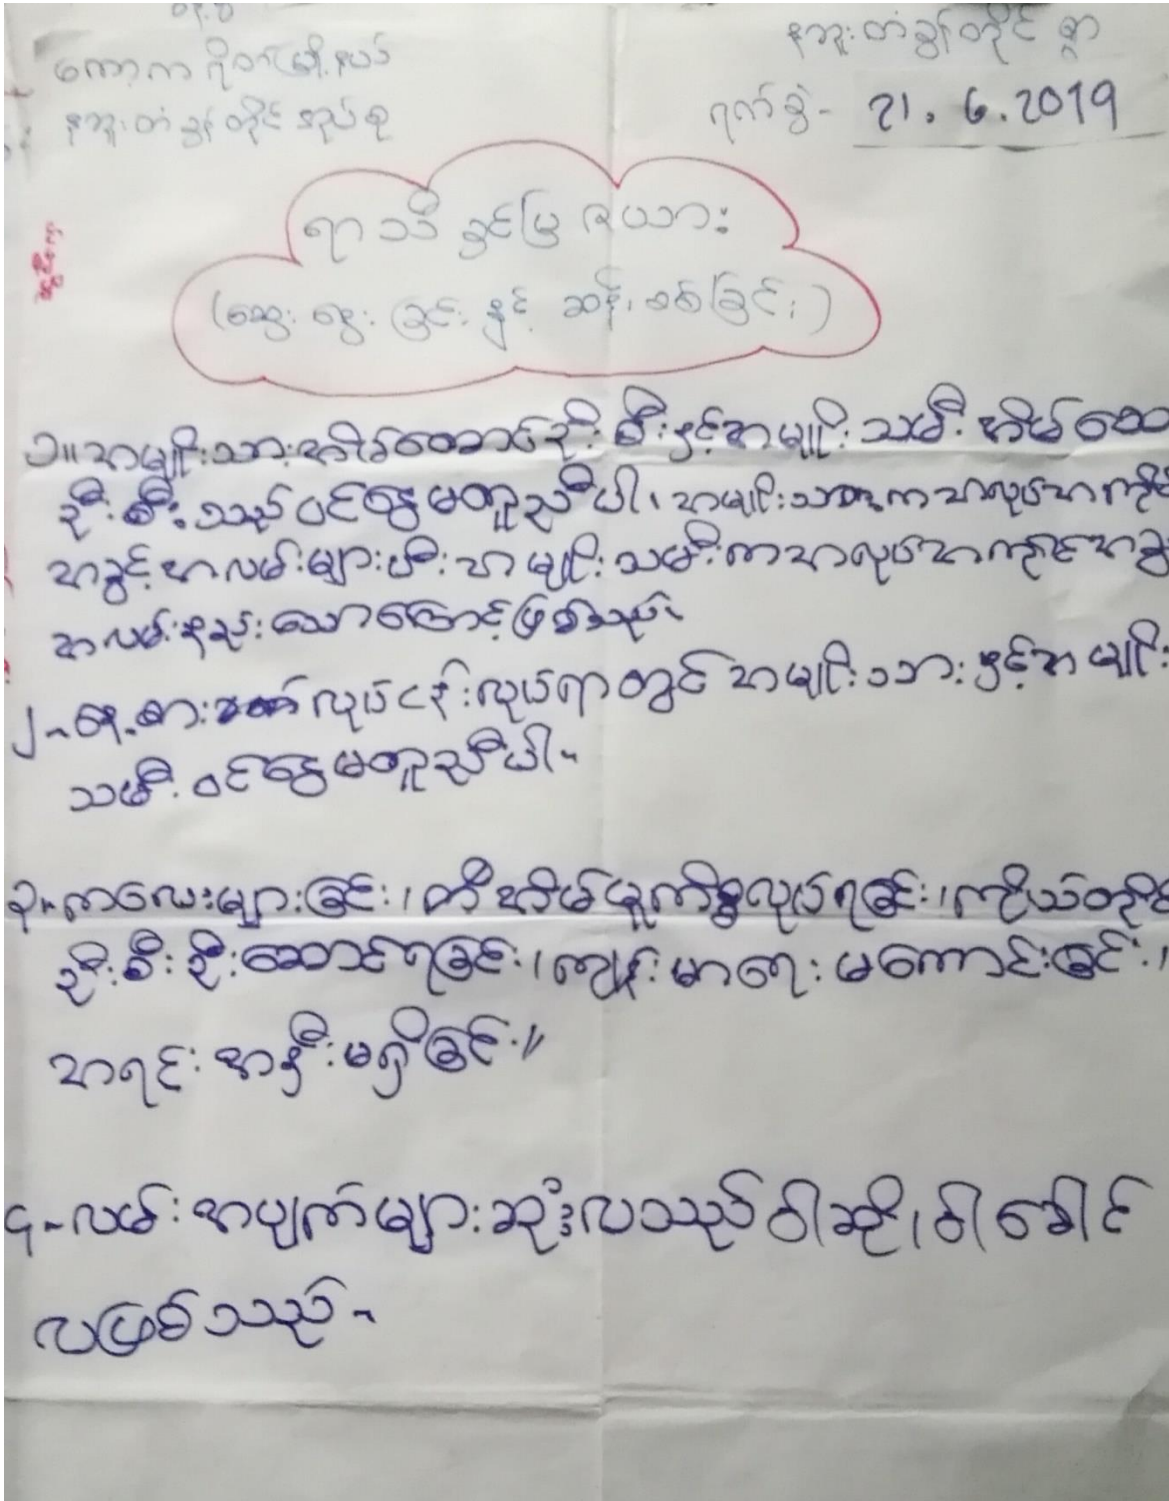 ကော့ကရိတ်မြို့နယ်
နဘူးတံခွန်တိုင်
နဘူးတံခွန်တိုင် ရွာ
ရက်စွဲ- 21.6.2019
ရာသီခွင်ပြဇယား
(ဆွေးနွေးခြင်း နှင့် ဆန်းစစ်ခြင်း)
၁။ အမျိုးသားအိမ်ထောင်ဦးစီးနှင့်အမျိုးသမီးအိမ်ထော
ဦးစီးသည်ဝင်ငွေမတူညီပါ၊အမျိုးသားကအလုပ်အကိုင်
အခွင့်အလမ်းများပြီးအမျိုးသမီးကအလုပ်အကိုင်အခွ
အလမ်းနည်းသောကြောင့်ဖြစ်သည်။
၂။ နေ့စားလုပ်ငန်းလုပ်ရာတွင်အမျိုးသားနှင့်အမျိုး
သမီးဝင်ငွေမတူညီပါ။
၃။ ကလေးများခြင်း၊အိမ်မှုကိစ္စလုပ်ရခြင်း၊ကိုယ်တိုင်
ဦးစီးဦးဆောင်ရခြင်း၊ကျန်းမာရေးမကောင်းခြင်း၊
အရင်းအနှီးမရှိခြင်း။
၄။ လမ်းအပျက်များဆုံးလသည်ဝါဆို၊ဝါခေါင်
လဖြစ်သည်။